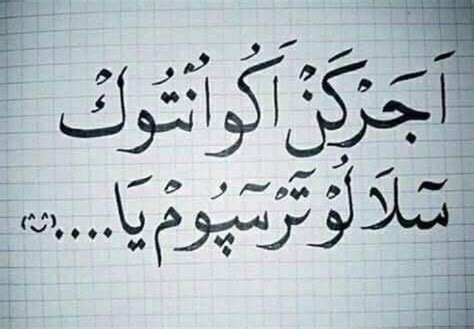 اَجَرْكَنْ اَكُو اُنْتُوكْ
سٓلَا لُوْ تٓرْسٓپُوْمْ يَا....(^‿^)